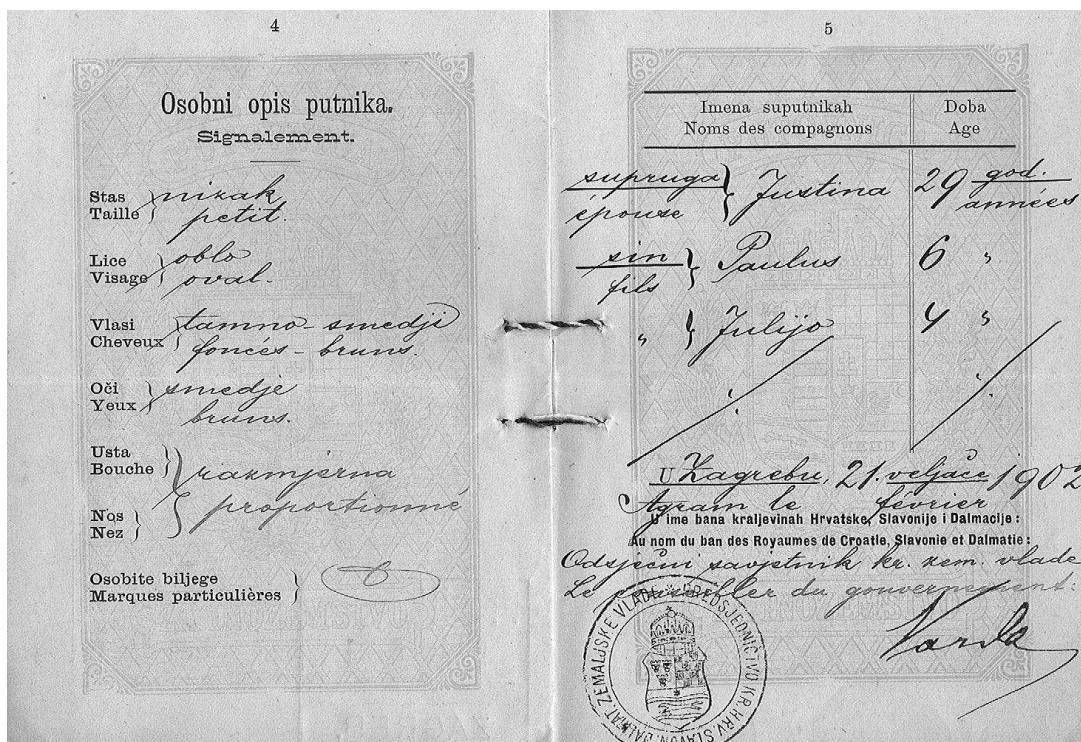 4
Osobni opis putnika.
Signalement.
Stas
Taille
nizak
petit.
Lice
Visage
oblo
oval.
Vlasi
Cheveux
tamno-smedji
foncés-bruns.
Oči
Yeux
smedje
bruns.
Usta
Bouche
Nos
Nez
razmjerna
proportionné
Osobite biljege
Marques particulières
5
Imena suputnikah
Noms des compagnons
Doba
Age
supruga
épouse
Justina 29 god.
années
sin
fils
Paulus 6 "
" Julijo 4 "
U Zagrebu, 21. veljače 1902
Agram le février
U ime bana kraljevinah Hrvatske, Slavonije i Dalmacije:
Au nom du ban des Royaumes de Croatie, Slavonie et Dalmatie:
Odsječni savjetnik kr. zem. vlade
Le conseiller du gouvernement:
PREDSJEDNIČTVO KR. HRV. SLAVON. DALMAT. ZEMALJSKE VLADE